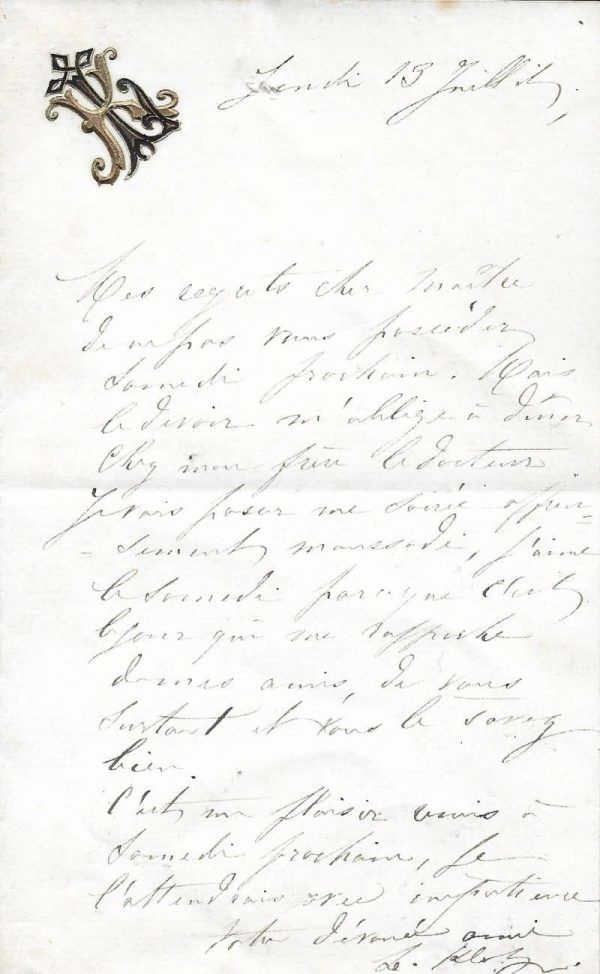 Lundi 13 Juillet,
Mes regrets cher Maître
de ne pas vous posséder
Samedi prochain. Mais
le devoir m'oblige à dîner
Chez mon frère le docteur
Je vais passer une soirée affreu-
-sement maussade, j'aime
le Samedi parce que c'est
le jour qui me rapproche
de mes amis, de vous
surtout et vous le savez
bien.
C'est un plaisir remis à
Samedi prochain, Je
l'attendrais avec impatience
votre dévoué ami
L. Klotz